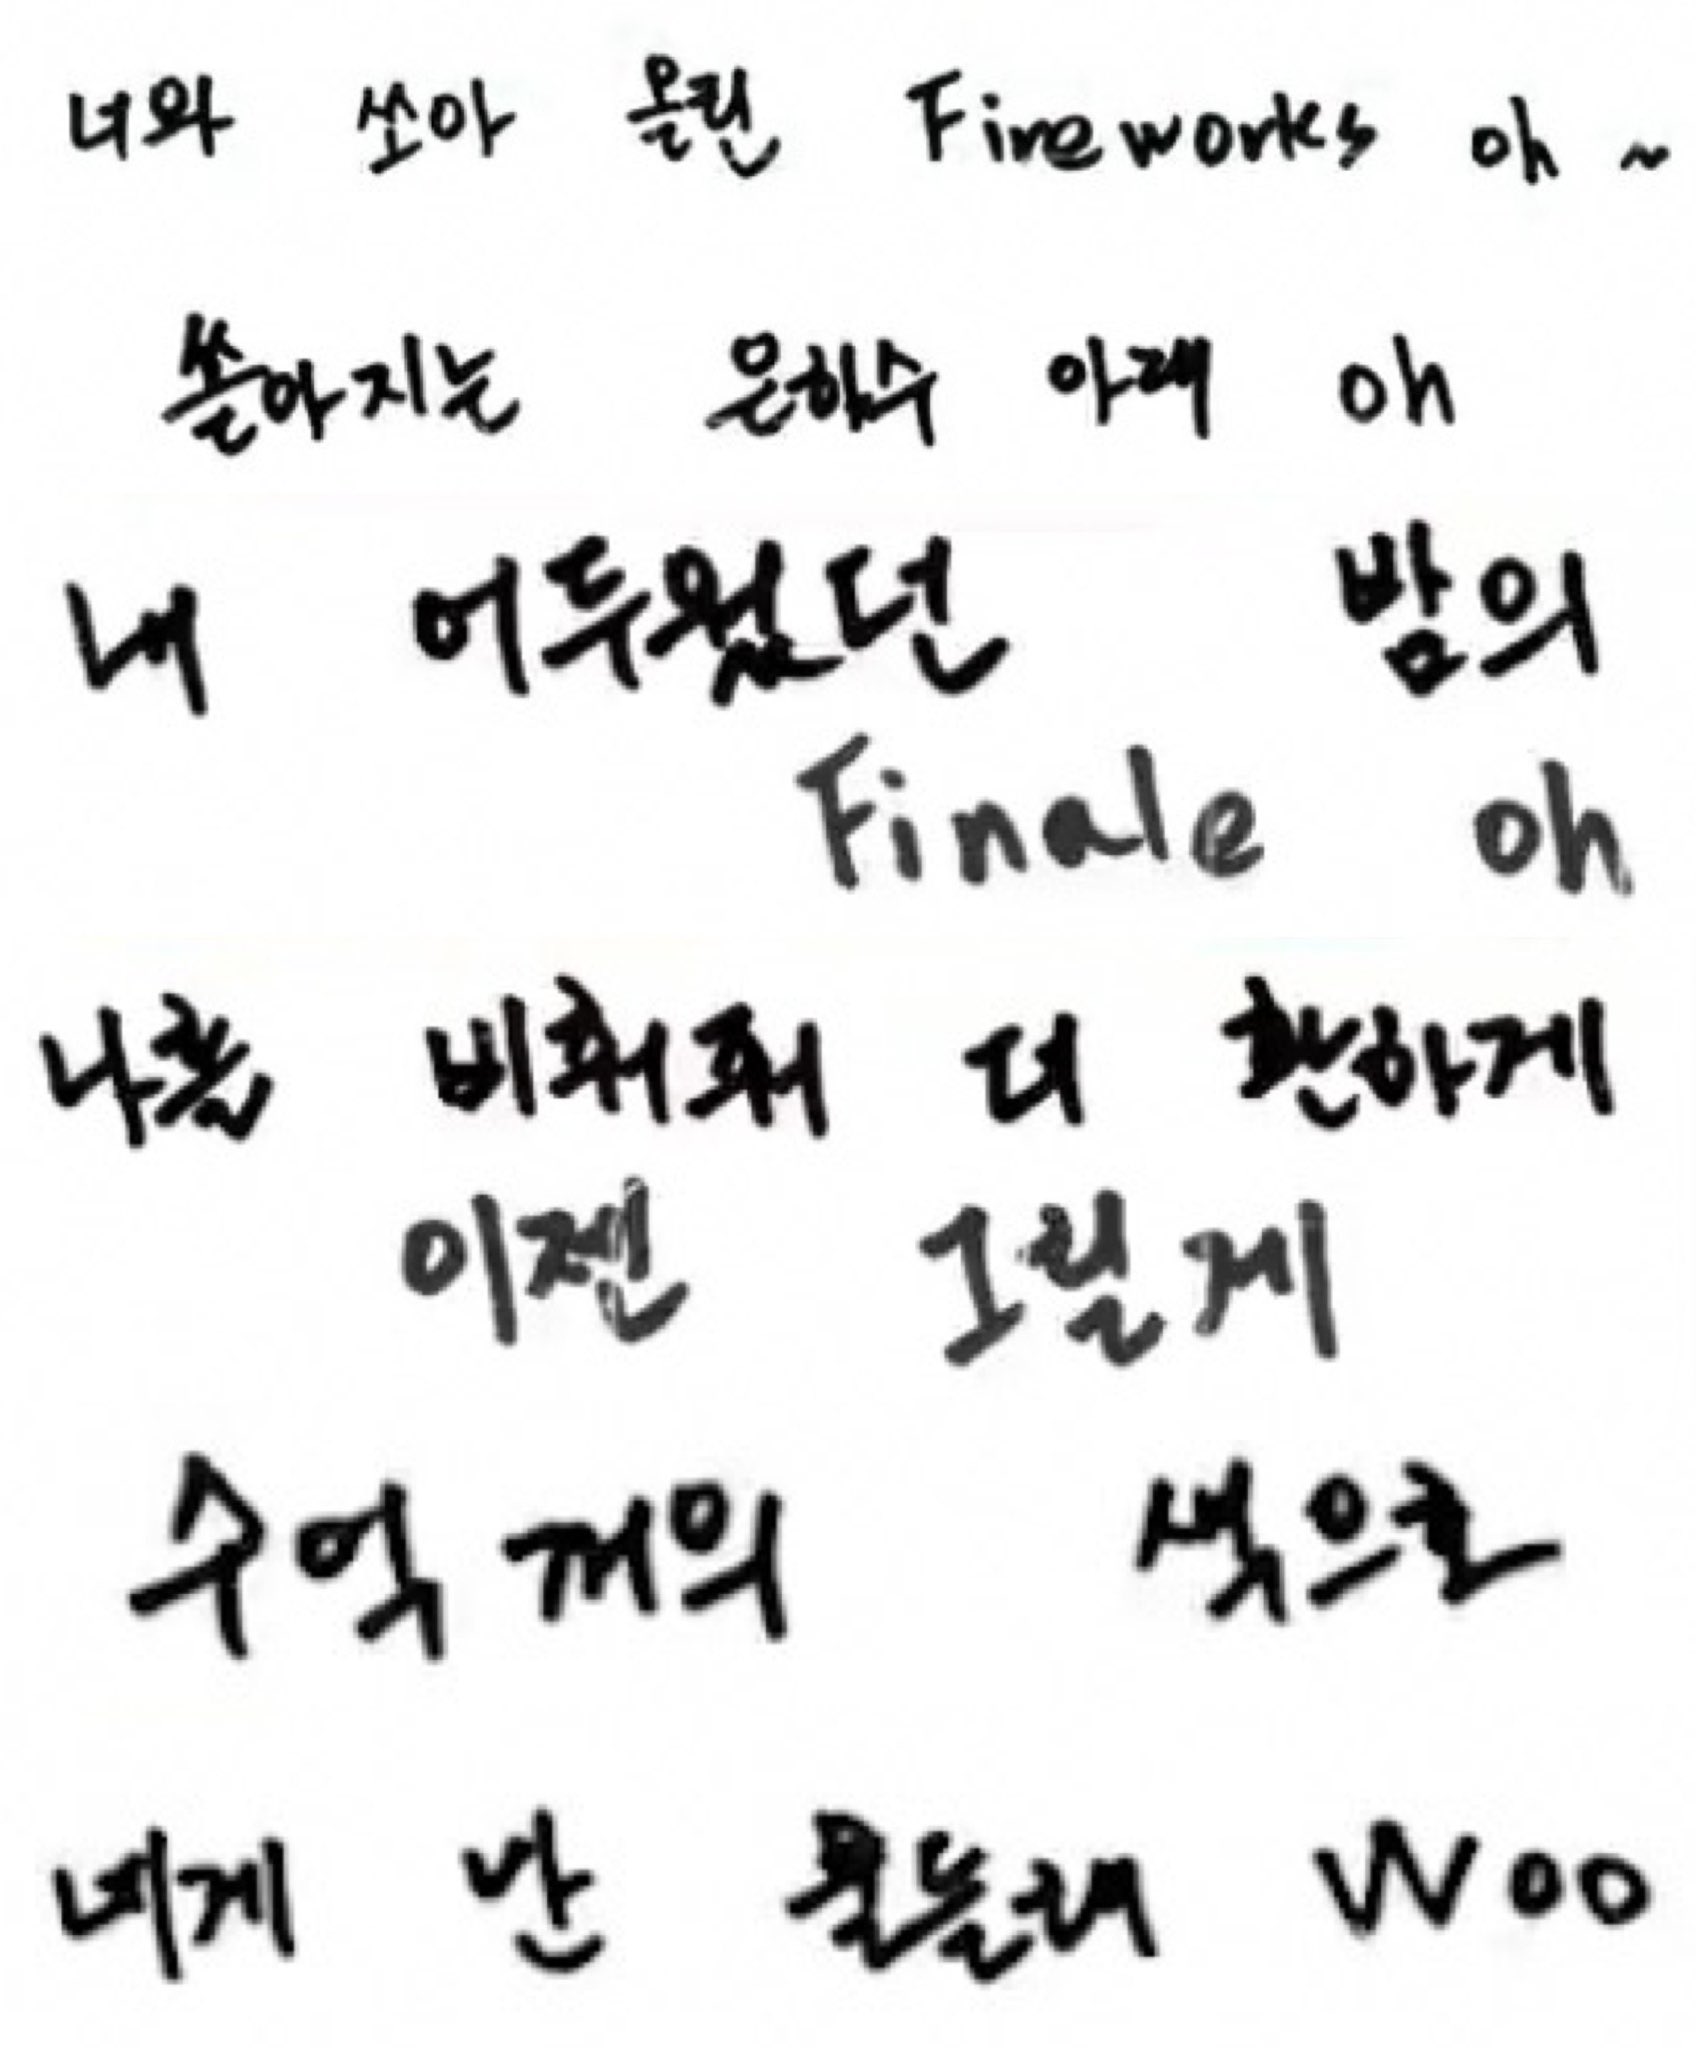 너와 쏘아 올린 Fireworks oh ~
쏟아지는 은하수 아래 oh
내 어두웠던 밤의
Finale oh
나를 비춰줘 더 환하게
이젠 그럴게
수억 개의 색으로
네게 난 물들래 Woo